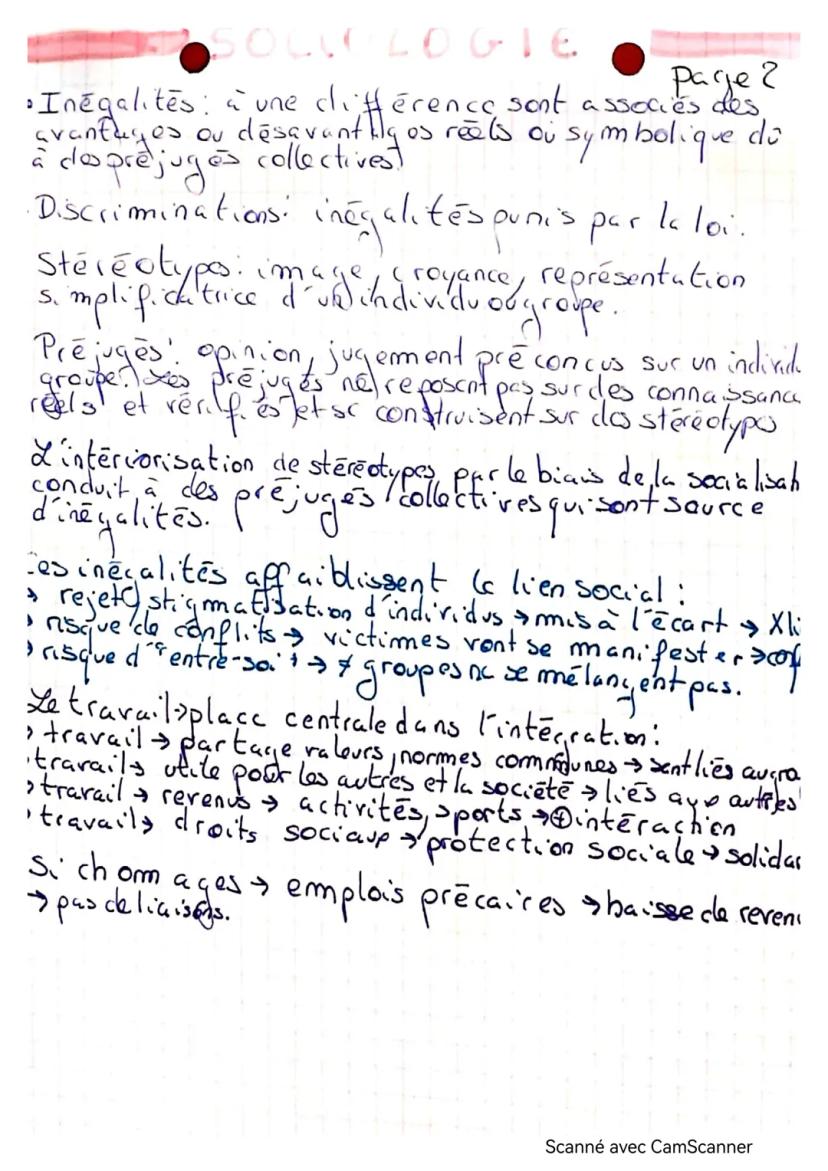 SOCIOLOGIE
page 2
• Inégalités : à une différence sont associés des
avantages ou désavantages réels ou symbolique dû
à des préjugés collectives
Discriminations : inégalités punis par la loi.
Stéréotypes : image, croyance, représentation
simplificatrice d'un individu ou groupe.
Préjugés : opinion, jugement préconçus sur un individ
groupe. Les préjugés ne reposent pas sur des connaissanc
réels et vérifiés et se construisent sur des stéréotypes
L'intériorisation de stéréotypes par le biais de la socialisat
conduit à des préjugés collectives qui sont source
d'inégalités.
Les inégalités affaiblissent le lien social :
→ rejet stigmatisation d'individus → mis à l'écart → Xli
→ risque de conflits → victimes vont se manifester → conf
→ risque d'"entre-soi" → ≠ groupes ne se mélangent pas.
Le travail → place centrale dans l'intégration :
→ travail → partage valeurs, normes communes → sent liés au gro
• travail → utile pour les autres et la société → liés aux autres
→ travail → revenus → activités, sports → ⊕ intéraction
• travail → droits sociaux → protection sociale → solidar
Si chomages → emplois précaires → baisse de reven
→ pas de liaisons.
Scanné avec CamScanner